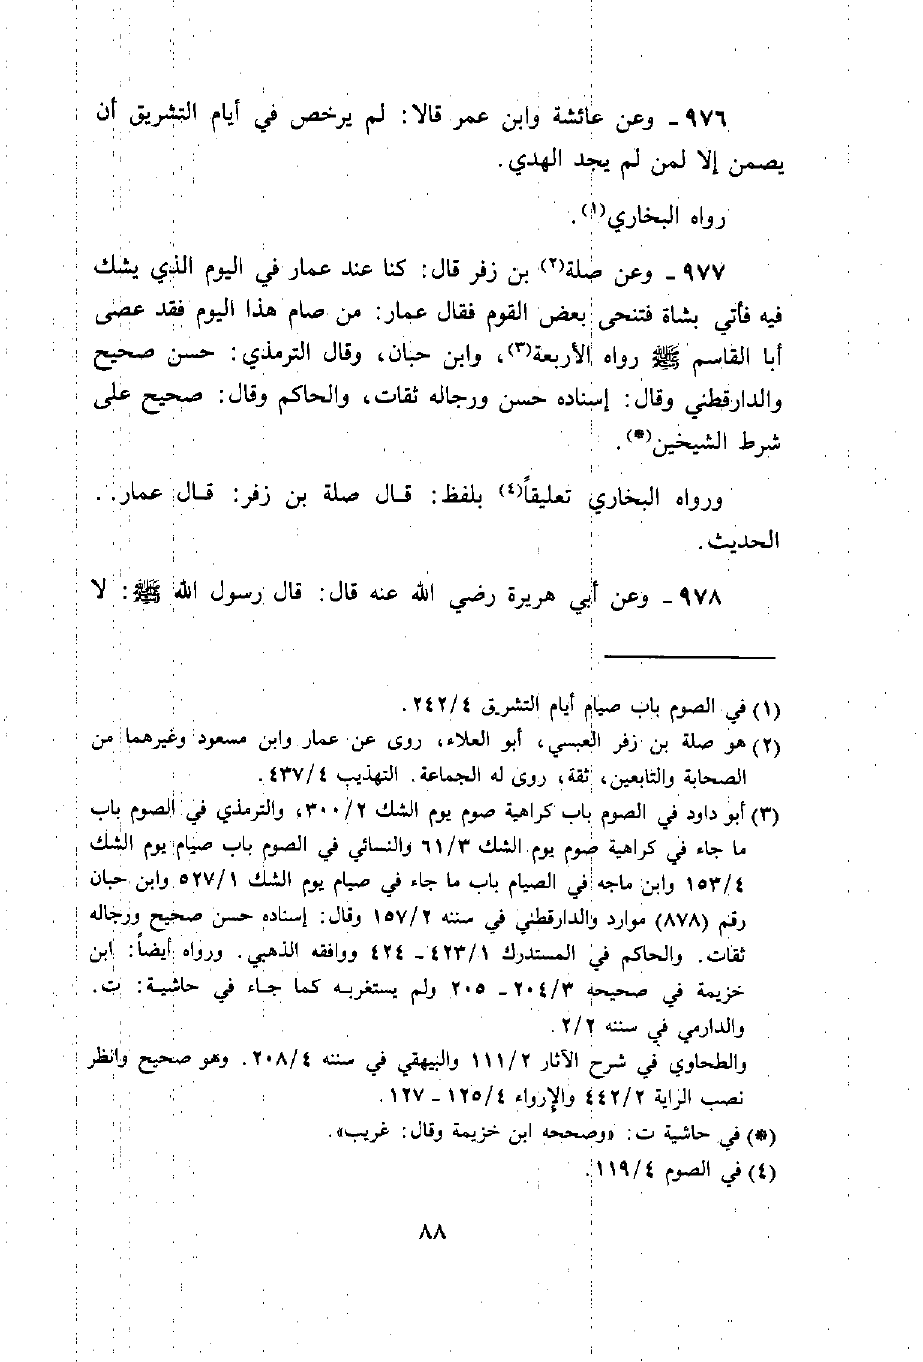 ٩٧٦ ـ وعن عائشة وابن عمر قالا: لم يرخص في أيام التشريق أن
يصمن إلا لمن لم يجد الهدي.
رواه البخاري(١).
٩٧٧ ـ وعن صلة(٢) بن زفر قال: كنا عند عمار في اليوم الذي يشك
فيه فأتي بشاة فتنحى بعض القوم فقال عمار: من صام هذا اليوم فقد عصى
أبا القاسم ﷺ رواه الأربعة(٣)، وابن حبان، وقال الترمذي: حسن صحيح
والدارقطني وقال: إسناده حسن ورجاله ثقات، والحاكم وقال: صحيح على
شرط الشيخين(*).
ورواه البخاري تعليقاً(٤) بلفظ: قال صلة بن زفر: قال عمار. .
الحديث.
٩٧٨ ـ وعن أبي هريرة رضي الله عنه قال: قال رسول الله ﷺ: لا
(١) في الصوم باب صيام أيام التشريق ٢٤٢/٤.
(٢) هو صلة بن زفر العبسي، أبو العلاء، روى عن عمار وابن مسعود وغيرهما من
الصحابة والتابعين، ثقة، روى له الجماعة. التهذيب ٤٣٧/٤.
(٣) أبو داود في الصوم باب كراهية صوم يوم الشك ٣٠٠/٢، والترمذي في الصوم باب
ما جاء في كراهية صوم يوم الشك ٦١/٣ والنسائي في الصوم باب صيام يوم الشك
١٥٣/٤ وابن ماجه في الصيام باب ما جاء في صيام يوم الشك ٥٢٧/١ وابن حبان
رقم (٨٧٨) موارد والدارقطني في سننه ١٥٧/٢ وقال: إسناده حسن صحيح ورجاله
ثقات. والحاكم في المستدرك ٤٢٣/١ ـ ٤٢٤ ووافقه الذهبي. ورواه أيضاً: ابن
خزيمة في صحيحه ٢٠٤/٣ ـ ٢٠٥ ولم يستغربه كما جاء في حاشية: ت.
والدارمي في سننه ٢/٢.
والطحاوي في شرح الآثار ١١١/٢ والبيهقي في سننه ٢٠٨/٤. وهو صحيح وانظر
نصب الراية ٤٤٢/٢ والإرواء ١٢٥/٤ ـ ١٢٧.
(*) في حاشية ت: «وصححه ابن خزيمة وقال: غريب».
(٤) في الصوم ١١٩/٤.
٨٨